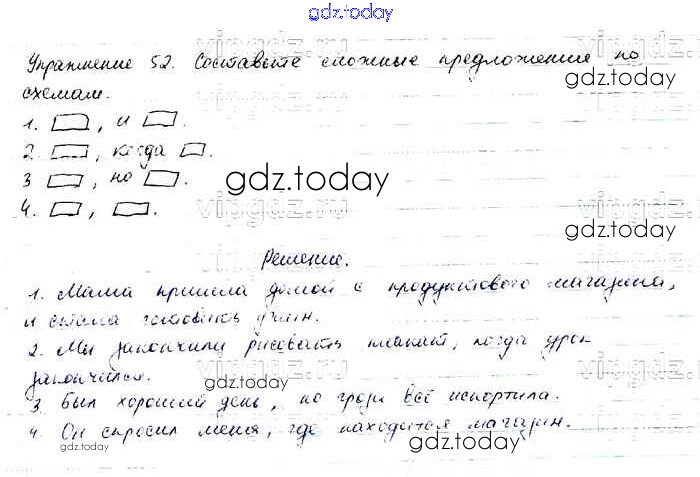 gdz.today
Упражнение 52. Составьте сложные предложения по
gdz.today
схемам.
1. , и .
2 , когда .
3 , но .
gdz.today
vipgdz.ru
4. , .
gdz.today
Решение.
1. Мама пришла домой с продуктового магазина,
и стала готовить ужин.
gdz.today
2. Мы закончили рисовать плакат, когда урок
vipgdz.ru
закончился.
gdz.today
3. Был хороший день, но гроза всё испортила.
4. Он спросил меня, где находится магазин.
gdz.today
gdz.today